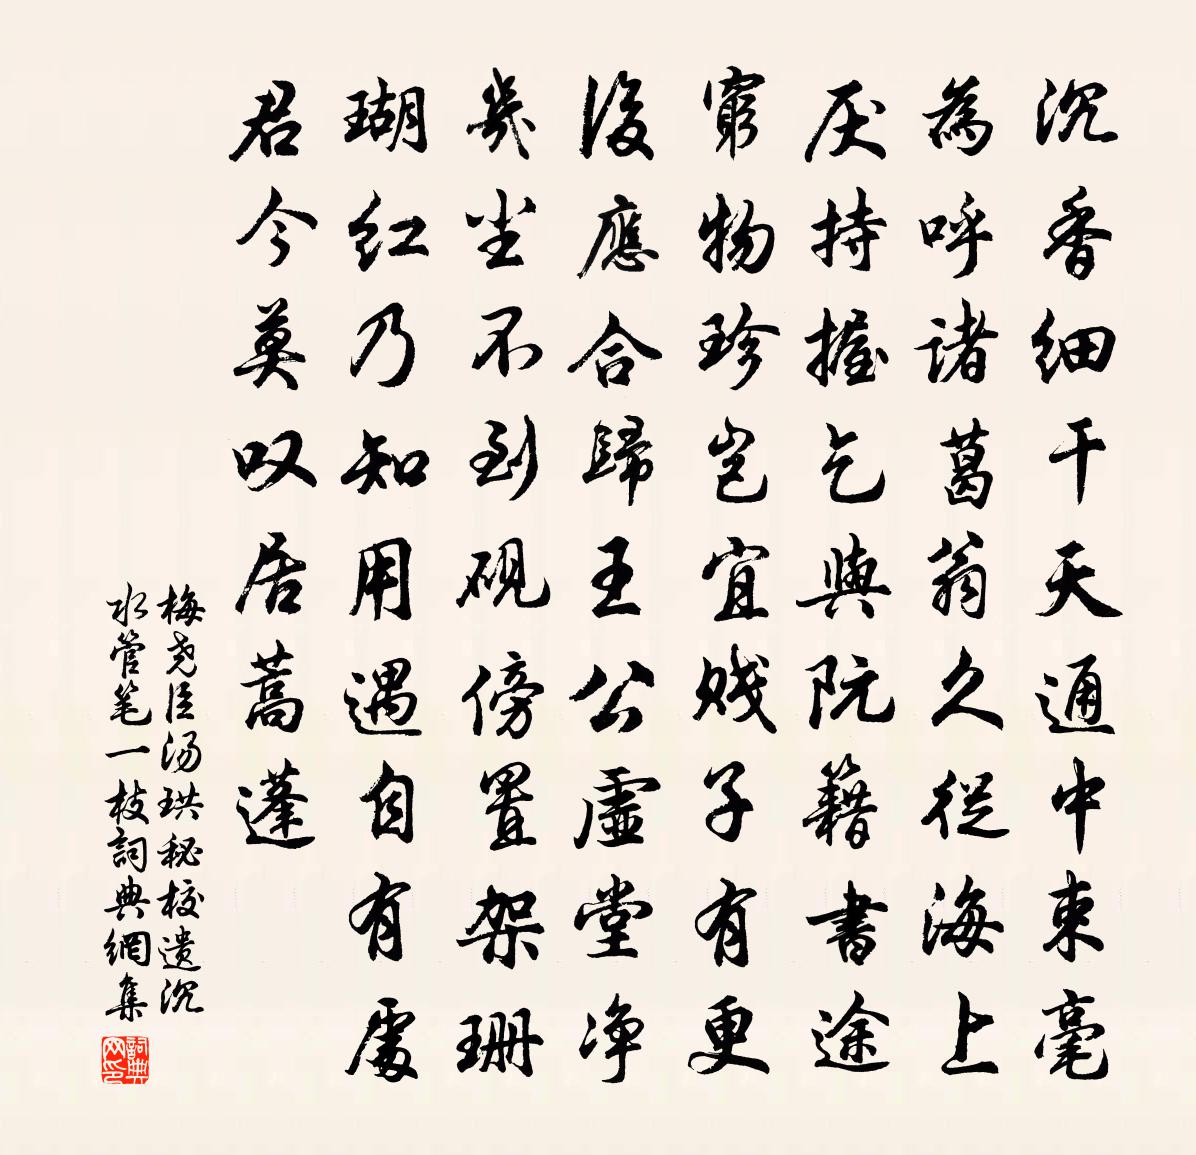 沉香细干天通中束毫
為呼诸葛翁久從海上
厌持握乞與阮籍書途
窮物珍岂宜贱子有更
後應合歸王公虚堂净
幾坐不到砚傍置架珊
瑚红乃知用遇自有處
君今莫叹居蒿蓬
梅尧臣汤珙秘校遗沉
水管笔一枝詞典網集
詞典网印